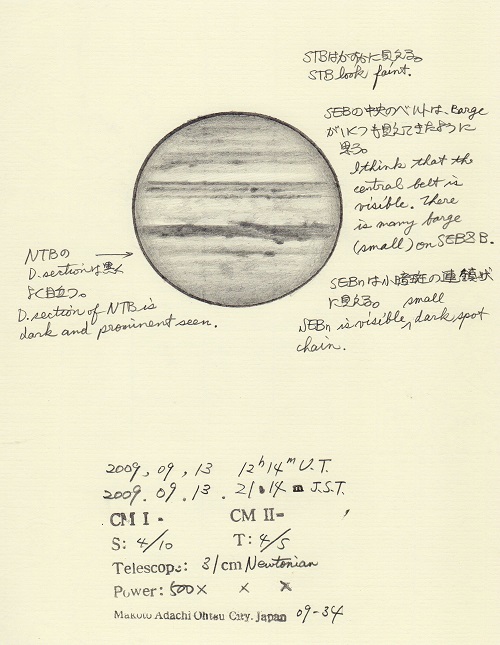 STBはかすかに見える。
STB look faint.
SEBの中央のベルトは、Barge
がいくつも見えてきたように
見る。
I think that the
central belt is
visible. There
is many barge
(small) on SEBZB.
NTBの
D.sectionは黒く
よく目立つ。
D.section of NTB is
dark and prominent seen.
SEBnは小暗斑の連鎖状
に見える。 small
SEBn is visible, dark spot
chain.
2009, 09, 13 12h14m U.T.
2009.09.13. 21.14 m J.S.T.
CM I -
CM II-
S: 4/10
T: 4/5
Telescope: 31cm Newtonian
Power: 500x x x
Makoto Adachi Ohtsu City. Japan 09-34